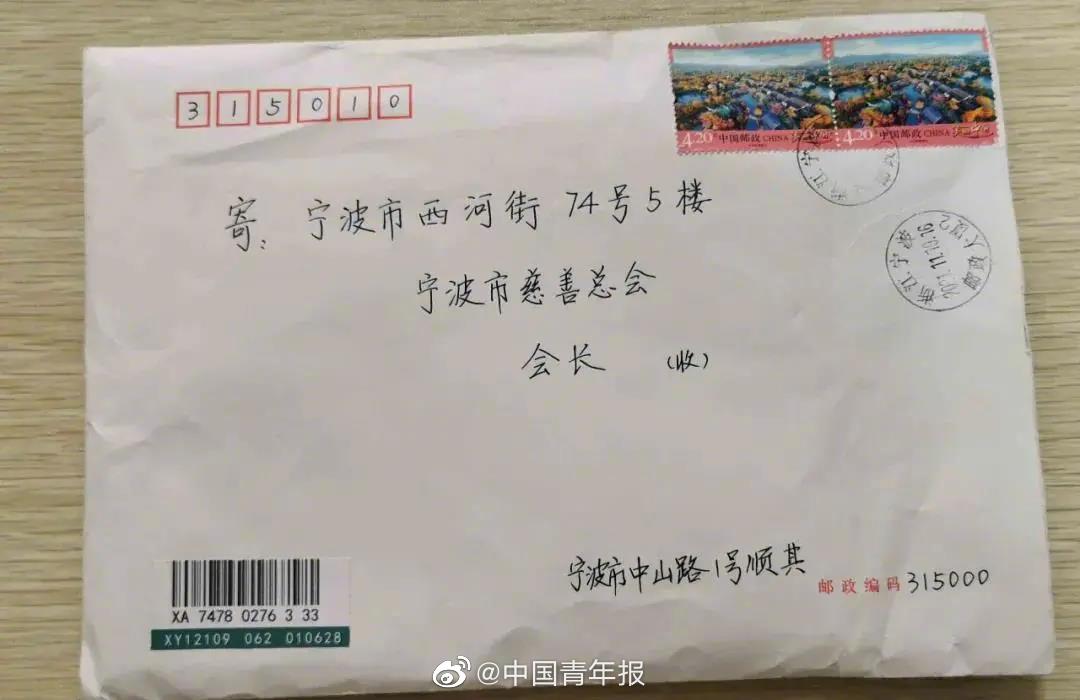 315010
4.20元 中国邮政 CHINA
4.20元 中国邮政 CHINA
寄: 宁波市西河街74号5楼
宁波市慈善总会
会长 (收)
浙江宁波
2021.11.20.16
宁波市中山路1号顺其
邮政编码 315000
XA 7478 0276 3 33
XY12109 062 010628
@中国青年报